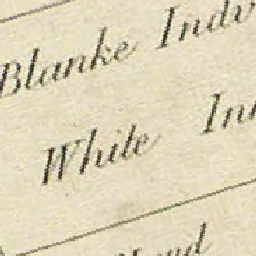 Blanke Indv
White Inn